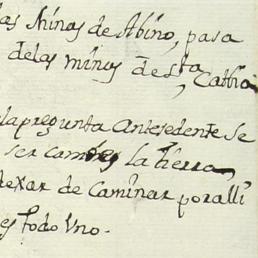 las Minas de Abino, pasa
delas minas de S^ta Catha
la pregunta Antesedente se
ser la tierra
dexar de Caminar por alli
es todo Uno.